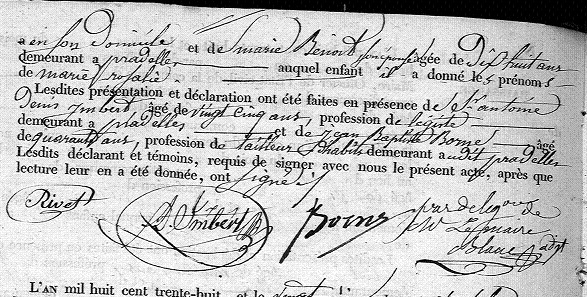 a en son domicile et de marie Benoit son épouse agée de Dix huit ans
demeurant a pradelles auquel enfant il a donné les prénoms
de marie rosalie.
Lesdites présentation et déclaration ont été faites en présence de Sr antoine
Denis Imbert âgé de vingt cinq ans, profession de légiste
demeurant a pradelles et de Jean Baptiste Borne âgé
de quarante ans, profession de tailleur d'habits demeurant audit pradelles
Lesdits déclarant et témoins, requis de signer avec nous le présent acte, après que
lecture leur en a été donnée, ont signé
Rivet D. Imbert Borne par délégon de
Mr Le maire
Blanc adjt
L'AN mil huit cent trente-huit, et le vingt